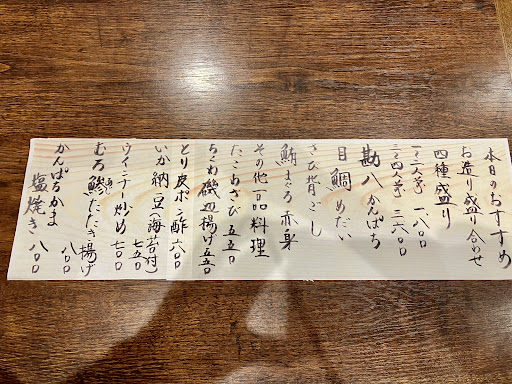 本日のおすすめ
お造り盛り合わせ
四種盛り
一〜二人前 一八〇〇
三〜四人前 三六〇〇
勘八 かんぱち
目鯛 めだい
さごし
鮪 まぐろ 赤身
その他一品料理
たこわさび 五五〇
ちくわ磯辺揚げ 五五〇
とり皮ポン酢 六〇〇
いか納豆(海苔付) 七五〇
ウインナー炒め 七〇〇
むろ鯵たたき揚げ 八〇〇
かんぱちかま
塩焼き 八〇〇